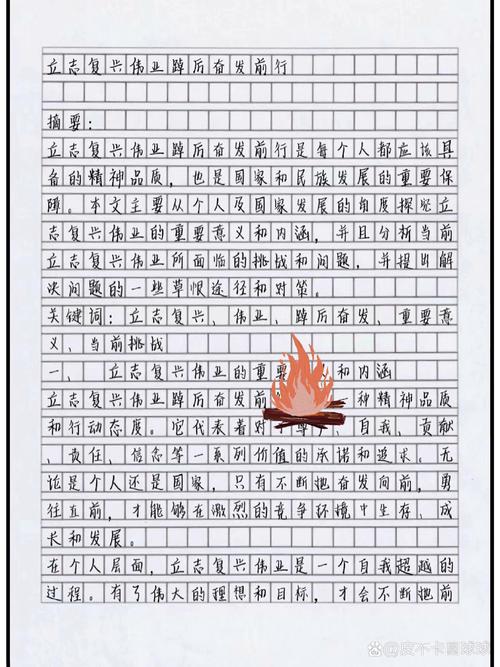 立志复兴伟业踔厉奋发前行
摘要：
立志复兴伟业踔厉奋发前行是每个人都应该具
备的精神品质，也是国家和民族发展的重要保
障。本文主要从个人及国家发展的角度探究立
志复兴伟业的重要意义和内涵，并且分析当前
立志复兴伟业所面临的挑战和问题，并提出解
决问题的一些草根途径和对策。
关键词：立志复兴、伟业、踔厉奋发、重要意
义、当前挑战
一、 立志复兴伟业的重要 和内涵
立志复兴伟业踔厉奋发前 种精神品质
和行动态度。它代表着对 自我、贡献
、责任、信念等一系列价值的承诺和追求。无
论是个人还是国家，只有不断地奋发向前，勇
往直前，才能够在激烈的竞争环境中生存、成
长和发展。
在个人层面，立志复兴伟业是一个自我超越的
过程。有了伟大的理想和目标，才会不断地前
度不卡星球球